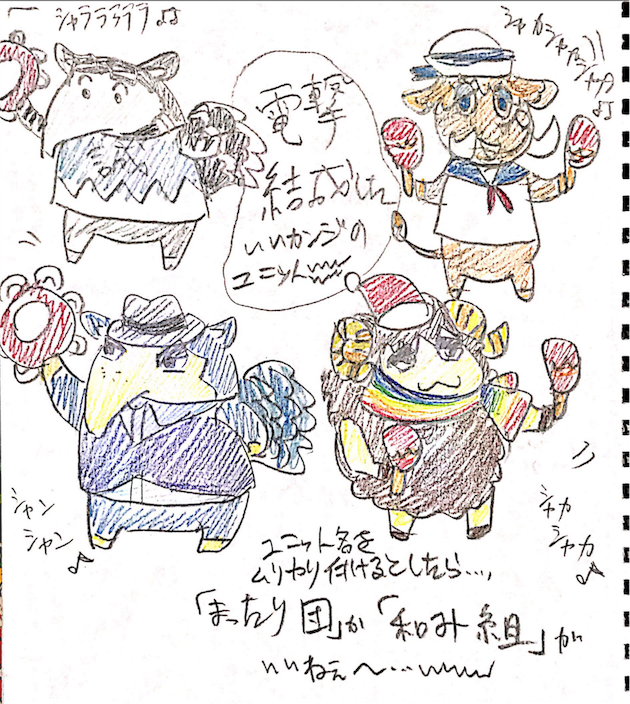 シャララララ♪♪
シャカシャカシャカ
♪♪
電撃
結成した
いいカンジの
ユニットwww
誠
シャン
シャン♪
シャカ
シャカ♪
ユニット名を
ムリヤリ付けるとしたら…、
「まったり団」か「和み組」が
いいねぇ〜…wwww